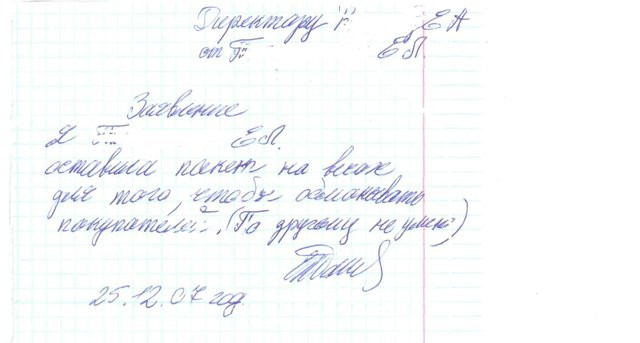 Директору Г Е А
от Г Е.П.
Заявление
Я П Е.П.
оставила пакет на весах
для того, чтобы обманывать
покупателей. (По другому не умею)
25.12.07 год.